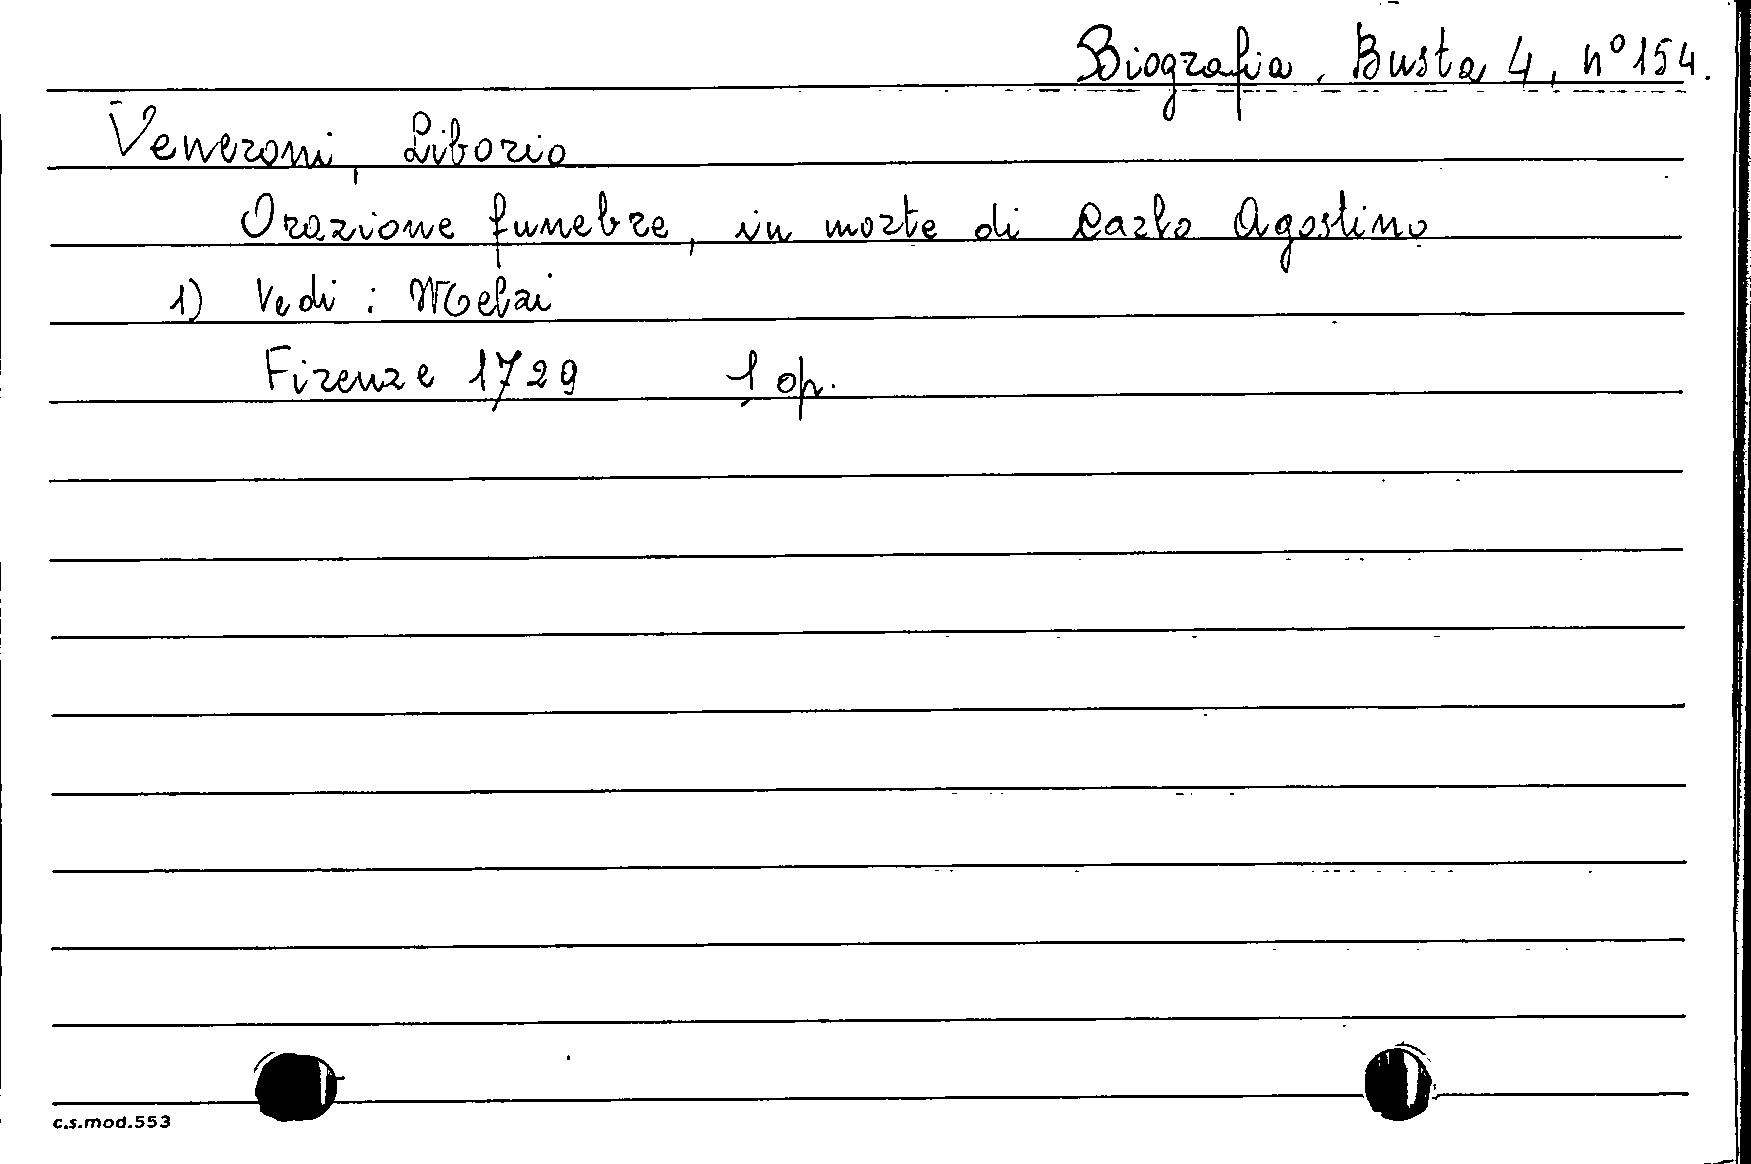 Biografia. Busta 4, n° 154.
Veneroni, Liborio
Orazione funebre, in morte di Carlo Agostino
1) Vedi: Melzi
Firenze 1729 1 op.
c.s.mod.553